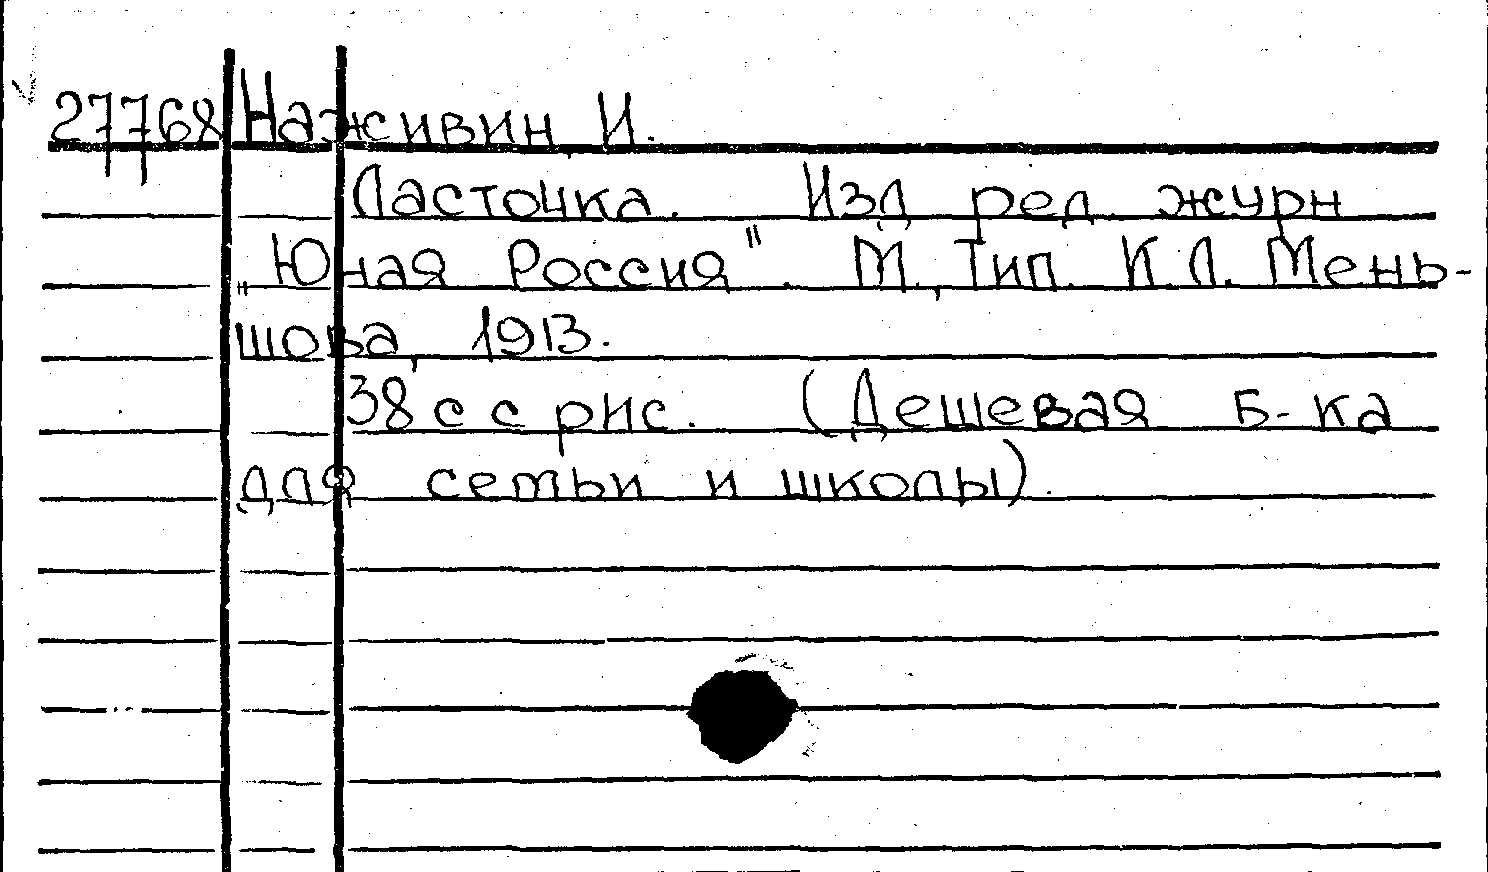 27768 Наживин, И.
Ласточка. Изд. ред. журн
„Юная Россия". М., Тип. К.Л. Мень-
шова, 1913.
38 с с рис. (Дешевая Б-ка
для семьи и школы).